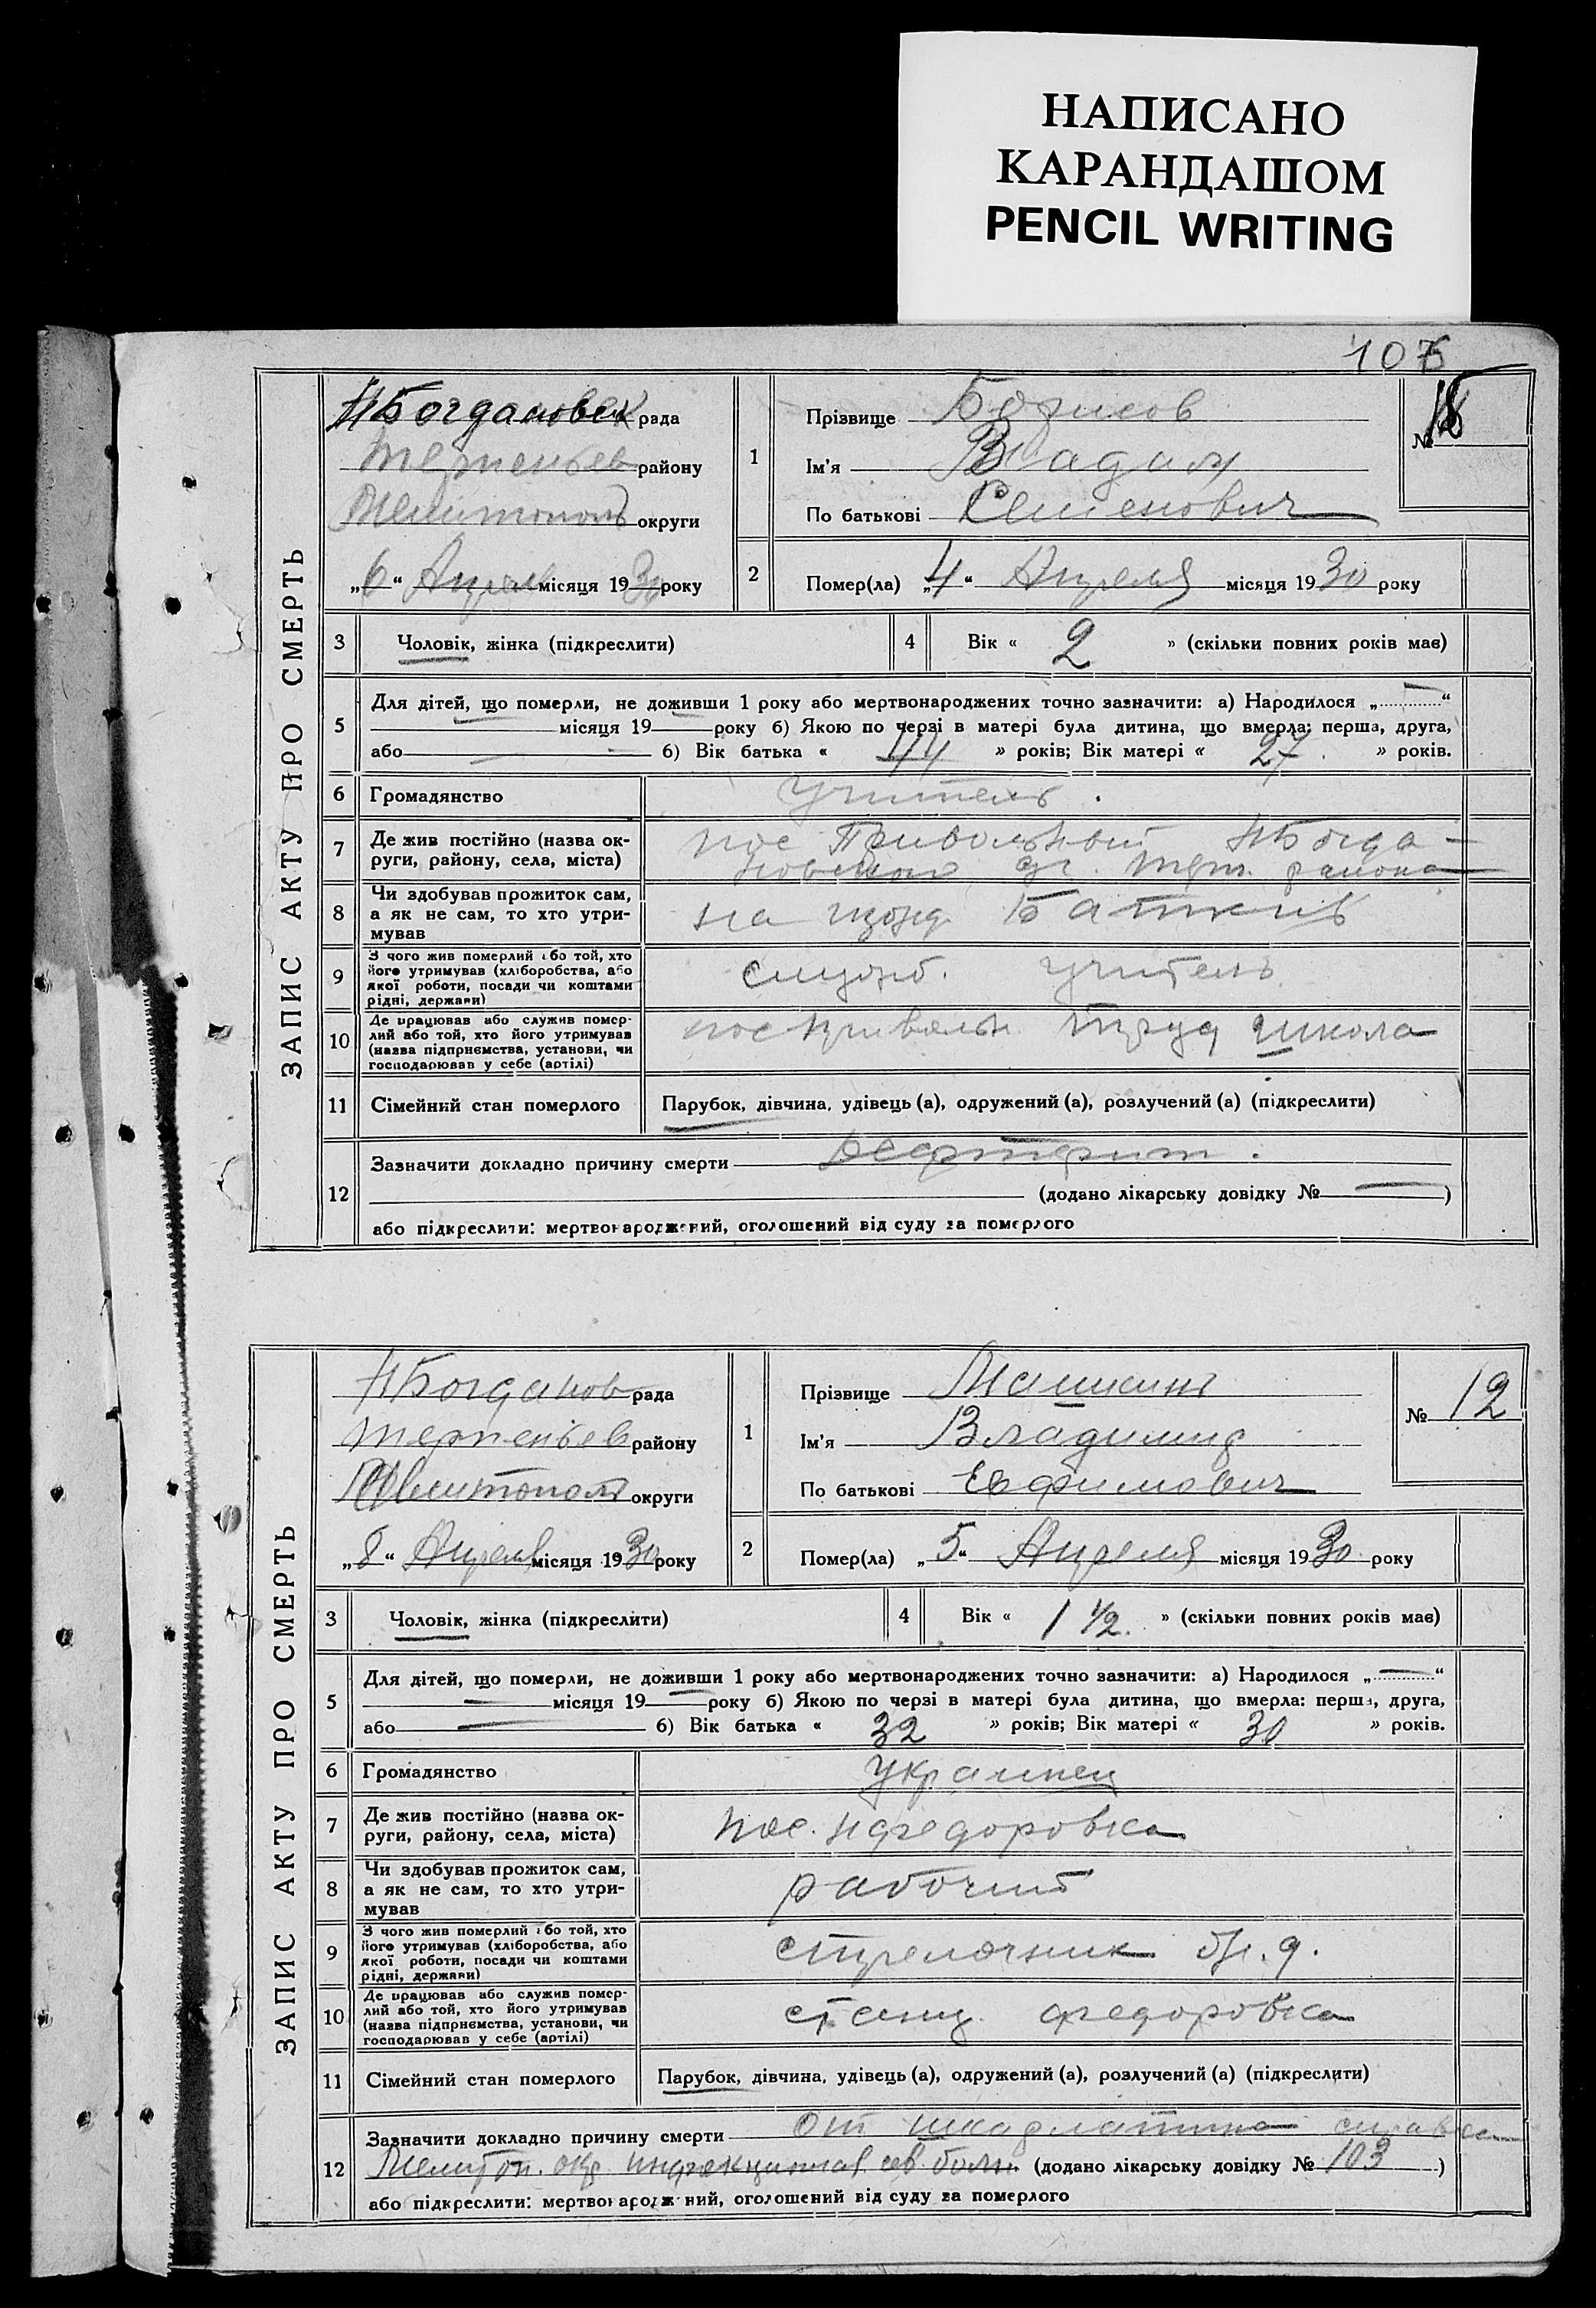 НАПИСАНО
КАРАНДАШОМ
PENCIL WRITING
106
ЗАПИС АКТУ ПРО СМЕРТЬ
НБогдановск рада
Терпеньев району
Мелитополь округи
„6“ Апреля місяця 1930 року
1
Прізвище Борисов
Ім'я
По батькові Семенович
№
2
Помер(ла) „4“ Апреля місяця 1930 року
3 Чоловік, жінка (підкреслити)
4 Вік « 2 » (скільки повних років має)
5 Для дітей, що померли, не доживши 1 року або мертвонароджених точно зазначити: а) Народилося „—“
— місяця 19— року б) Якою по черзі в матері була дитина, що вмерла: перша, друга,
або — б) Вік батька « 44 » років; Вік матері « 27 » років.
6 Громадянство учитель.
7 Де жив постійно (назва округи, району, села, міста) пос Привольный НБогда-
новской района
8 Чи здобував прожиток сам, а як не сам, то хто утримував на ижд
9 З чого жив померлий або той, хто його утримував (хліборобства, або якої роботи, посади чи коштами рідні, держави) служб. учитель
10 Де працював або служив померлий або той, хто його утримував (назва підприємства, установи, чи господарював у себе (артілі) пос привольн труд школа
11 Сімейний стан померлого Парубок, дівчина, удівець (а), одружений (а), розлучений (а) (підкреслити)
12 Зазначити докладно причину смерти
(додано лікарську довідку № — )
або підкреслити: мертвонароджений, оголошений від суду за померлого
ЗАПИС АКТУ ПРО СМЕРТЬ
НБогданов рада
Терпеньев району
Мелитополь округи
„8“ Апреля місяця 1930 року
1
Прізвище Машкин
Ім'я Владимир
По батькові Евфимович
№ 12
2
Помер(ла) „5“ Апреля місяця 1930 року
3 Чоловік, жінка (підкреслити)
4 Вік « 1 ½. » (скільки повних років має)
5 Для дітей, що померли, не доживши 1 року або мертвонароджених точно зазначити: а) Народилося „—“
— місяця 19— року б) Якою по черзі в матері була дитина, що вмерла: перша, друга,
або — б) Вік батька « 32 » років; Вік матері « 30 » років.
6 Громадянство украинец
7 Де жив постійно (назва округи, району, села, міста) пос. Нфедоровка
8 Чи здобував прожиток сам, а як не сам, то хто утримував рабочий
9 З чого жив померлий або той, хто його утримував (хліборобства, або якої роботи, посади чи коштами рідні, держави) стрелочник
10 Де працював або служив померлий або той, хто його утримував (назва підприємства, установи, чи господарював у себе (артілі) станц. федоровка
11 Сімейний стан померлого Парубок, дівчина, удівець (а), одружений (а), розлучений (а) (підкреслити)
12 Зазначити докладно причину смерти от шкарлатина справка
Мелитоп. окр инфекционой болн. (додано лікарську довідку № 103 )
або підкреслити: мертвонароджений, оголошений від суду за померлого